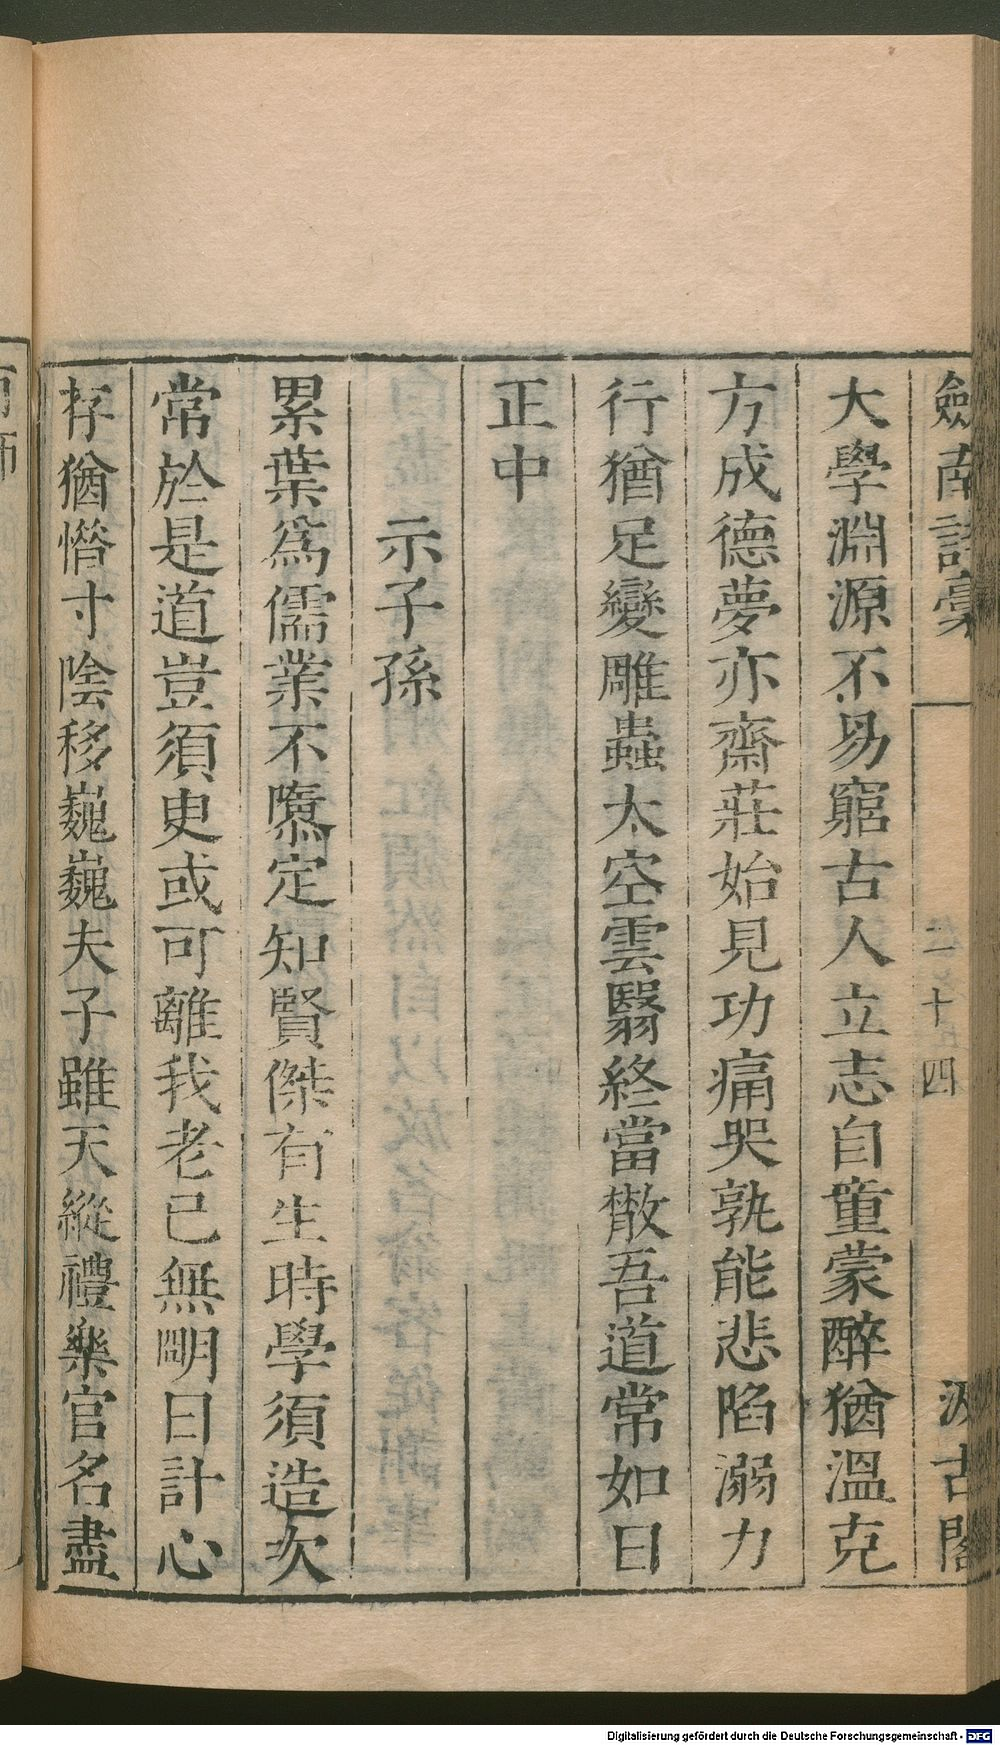 劍南詩稾
二十四
汲古閣
大學淵源不易窮古人立志自童蒙醉猶溫克
方成德夢亦齋莊始見功痛哭孰能悲陷溺力
行猶足變雕蟲太空雲翳終當散吾道常如日
正中
示子孫
累葉爲儒業不隳定知賢傑有生時學須造次
常於是道豈須臾或可離我老已無明日計心
存猶惜寸陰移巍巍夫子雖天縱禮樂官名盡
有師
Digitalisierung gefördert durch die Deutsche Forschungsgemeinschaft - DFG